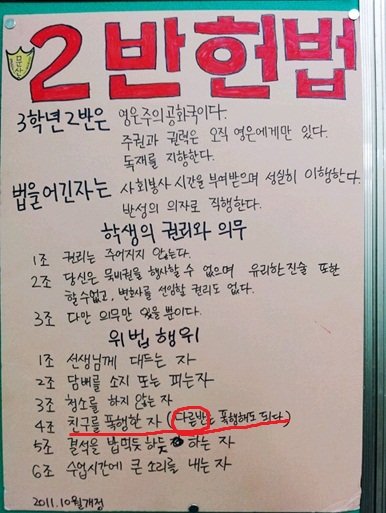 문산
2반헌법
3학년 2반은 영은주의공화국이다.
주권과 권력은 오직 영은에게만 있다.
독재를 지향한다.
법을어긴자는 사회봉사 시간을 부여받으며 성실히 이행한다.
반성의 의자로 직행한다.
학생의 권리와 의무
1조 권리는 주어지지 않는다.
2조 당신은 묵비권을 행사할 수 없으며 유리한진술 또한
할수없고, 변호사를 선임할 권리도 없다.
3조 다만 의무만 있을 뿐이다.
위법 행위
1조 선생님께 대드는 자
2조 담배를 소지 또는 피는자
3조 청소를 하지 않는 자
4조 친구를 폭행한 자 (다른반은 폭행해도 되다)
5조 결석을 밥먹듯 하듯 하는 자
6조 수업시간에 큰 소리를 내는 자
2011.10월개정